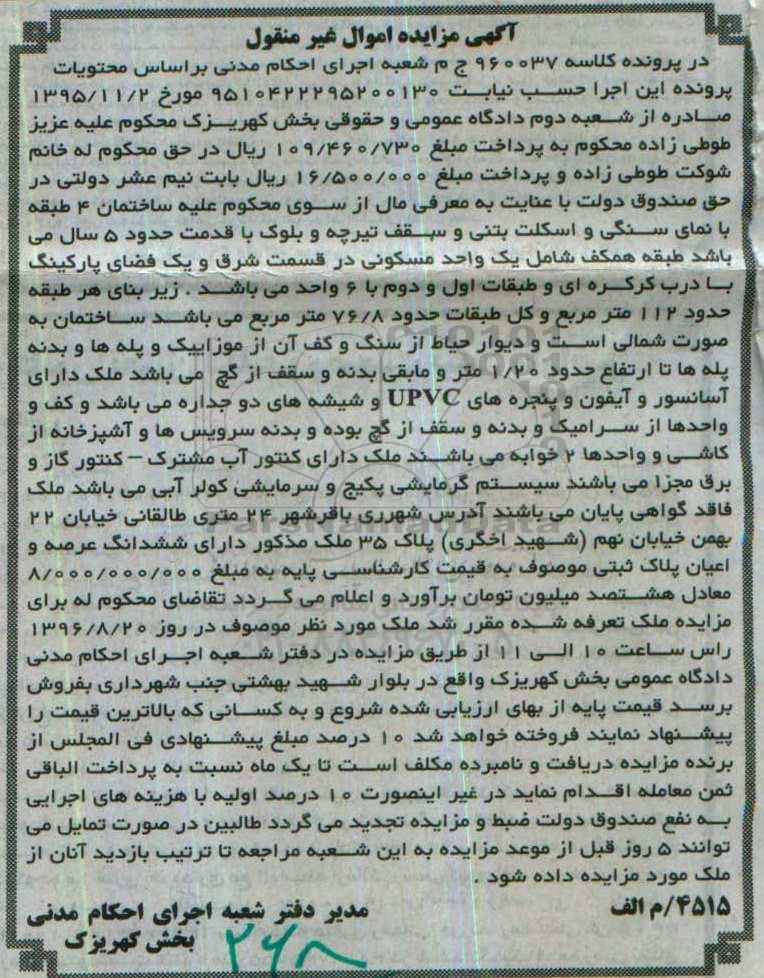 آگهی مزایده اموال غیر منقول
در پرونده کلاسه ۹۶۰۰۳۷ ج م شعبه اجرای احکام مدنی براساس محتویات
پرونده این اجرا حسب نیابت ۹۵۱۰۴۲۲۲۹۵۲۰۰۱۳۰ مورخ ۱۳۹۵/۱۱/۲
صادره از شعبه دوم دادگاه عمومی و حقوقی بخش کهریزک محکوم علیه عزیز
طوطی زاده محکوم به پرداخت مبلغ ۱۰۹/۴۶۰/۷۳۰ ریال در حق محکوم له خانم
شوکت طوطی زاده و پرداخت مبلغ ۱۶/۵۰۰/۰۰۰ ریال بابت نیم عشر دولتی در
حق صندوق دولت با عنایت به معرفی مال از سوی محکوم علیه ساختمان ۴ طبقه
با نمای سنگی و اسکلت بتنی و سقف تیرچه و بلوک با قدمت حدود ۵ سال می
باشد طبقه همکف شامل یک واحد مسکونی در قسمت شرق و یک فضای پارکینگ
با درب کرکره ای و طبقات اول و دوم با ۶ واحد می باشد . زیر بنای هر طبقه
حدود ۱۱۲ متر مربع و کل طبقات حدود ۷۶/۸ متر مربع می باشد ساختمان به
صورت شمالی است و دیوار حیاط از سنگ و کف آن از موزاییک و پله ها و بدنه
پله ها تا ارتفاع حدود ۱/۲۰ متر و مابقی بدنه و سقف از گچ می باشد ملک دارای
آسانسور و آیفون و پنجره های UPVC و شیشه های دو جداره می باشد و کف و
واحدها از سرامیک و بدنه و سقف از گچ بوده و بدنه سرویس ها و آشپزخانه از
کاشی و واحدها ۲ خوابه می باشند ملک دارای کنتور آب مشترک – کنتور گاز و
برق مجزا می باشند سیستم گرمایشی پکیج و سرمایشی کولر آبی می باشد ملک
فاقد گواهی پایان می باشند آدرس شهرری باقرشهر ۲۴ متری طالقانی خیابان ۲۲
بهمن خیابان نهم (شهید اخگری) پلاک ۳۵ ملک مذکور دارای ششدانگ عرصه و
اعیان پلاک ثبتی موصوف به قیمت کارشناسی پایه به مبلغ ۸/۰۰۰/۰۰۰/۰۰۰
معادل هشتصد میلیون تومان برآورد و اعلام می گردد تقاضای محکوم له برای
مزایده ملک تعرفه شده مقرر شد ملک مورد نظر موصوف در روز ۱۳۹۶/۸/۲۰
راس ساعت ۱۰ الی ۱۱ از طریق مزایده در دفتر شعبه اجرای احکام مدنی
دادگاه عمومی بخش کهریزک واقع در بلوار شهید بهشتی جنب شهرداری بفروش
برسد قیمت پایه از بهای ارزیابی شده شروع و به کسانی که بالاترین قیمت را
پیشنهاد نمایند فروخته خواهد شد ۱۰ درصد مبلغ پیشنهادی فی المجلس از
برنده مزایده دریافت و نامبرده مکلف است تا یک ماه نسبت به پرداخت الباقی
ثمن معامله اقدام نماید در غیر اینصورت ۱۰ درصد اولیه با هزینه های اجرایی
به نفع صندوق دولت ضبط و مزایده تجدید می گردد طالبین در صورت تمایل می
توانند ۵ روز قبل از موعد مزایده به این شعبه مراجعه تا ترتیب بازدید آنان از
ملک مورد مزایده داده شود .
۴۵۱۵/م الف
مدیر دفتر شعبه اجرای احکام مدنی
بخش کهریزک